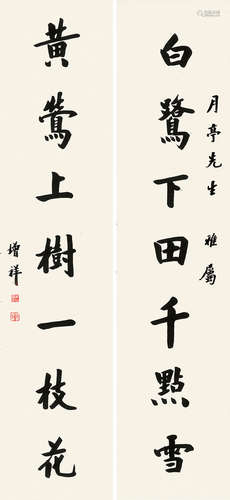 白鷺下田千點雪
月亭先生 雅屬
黃鶯上樹一枝花
增祥